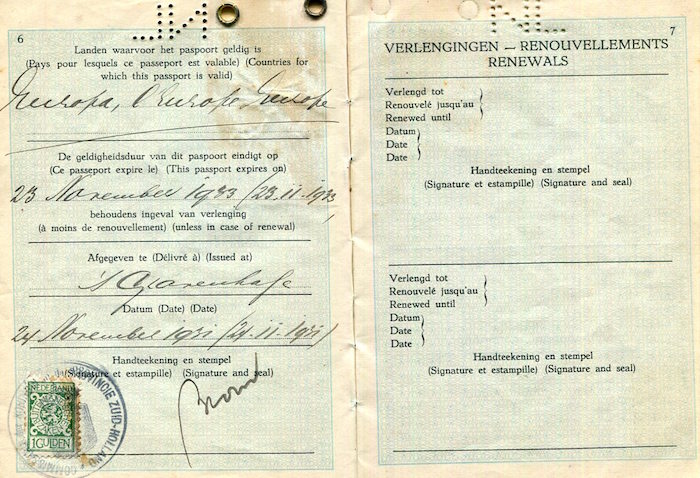 6
Landen waarvoor het paspoort geldig is
(Pays pour lesquels ce passeport est valable) (Countries for
which this passport is valid)
Europa, l'Europe, Europe
De geldigheidsduur van dit paspoort eindigt op
(Ce passeport expire le) (This passport expires on)
23 November 1933 (23.11.1933)
behoudens ingeval van verlenging
(à moins de renouvellement) (unless in case of renewal)
Afgegeven te (Délivré à) (Issued at)
's Gravenhage
Datum (Date) (Date)
24 November 1931 (24.11.1931)
Handteekening en stempel
(Signature et estampille) (Signature and seal)
NEDERLAND
1 GULDEN
PROVINCIE ZUID-HOLLAND
7
VERLENGINGEN — RENOUVELLEMENTS
RENEWALS
Verlengd tot
Renouvelé jusqu'au
Renewed until
Datum
Date
Date
Handteekening en stempel
(Signature et estampille) (Signature and seal)
Verlengd tot
Renouvelé jusqu'au
Renewed until
Datum
Date
Date
Handteekening en stempel
(Signature et estampille) (Signature and seal)